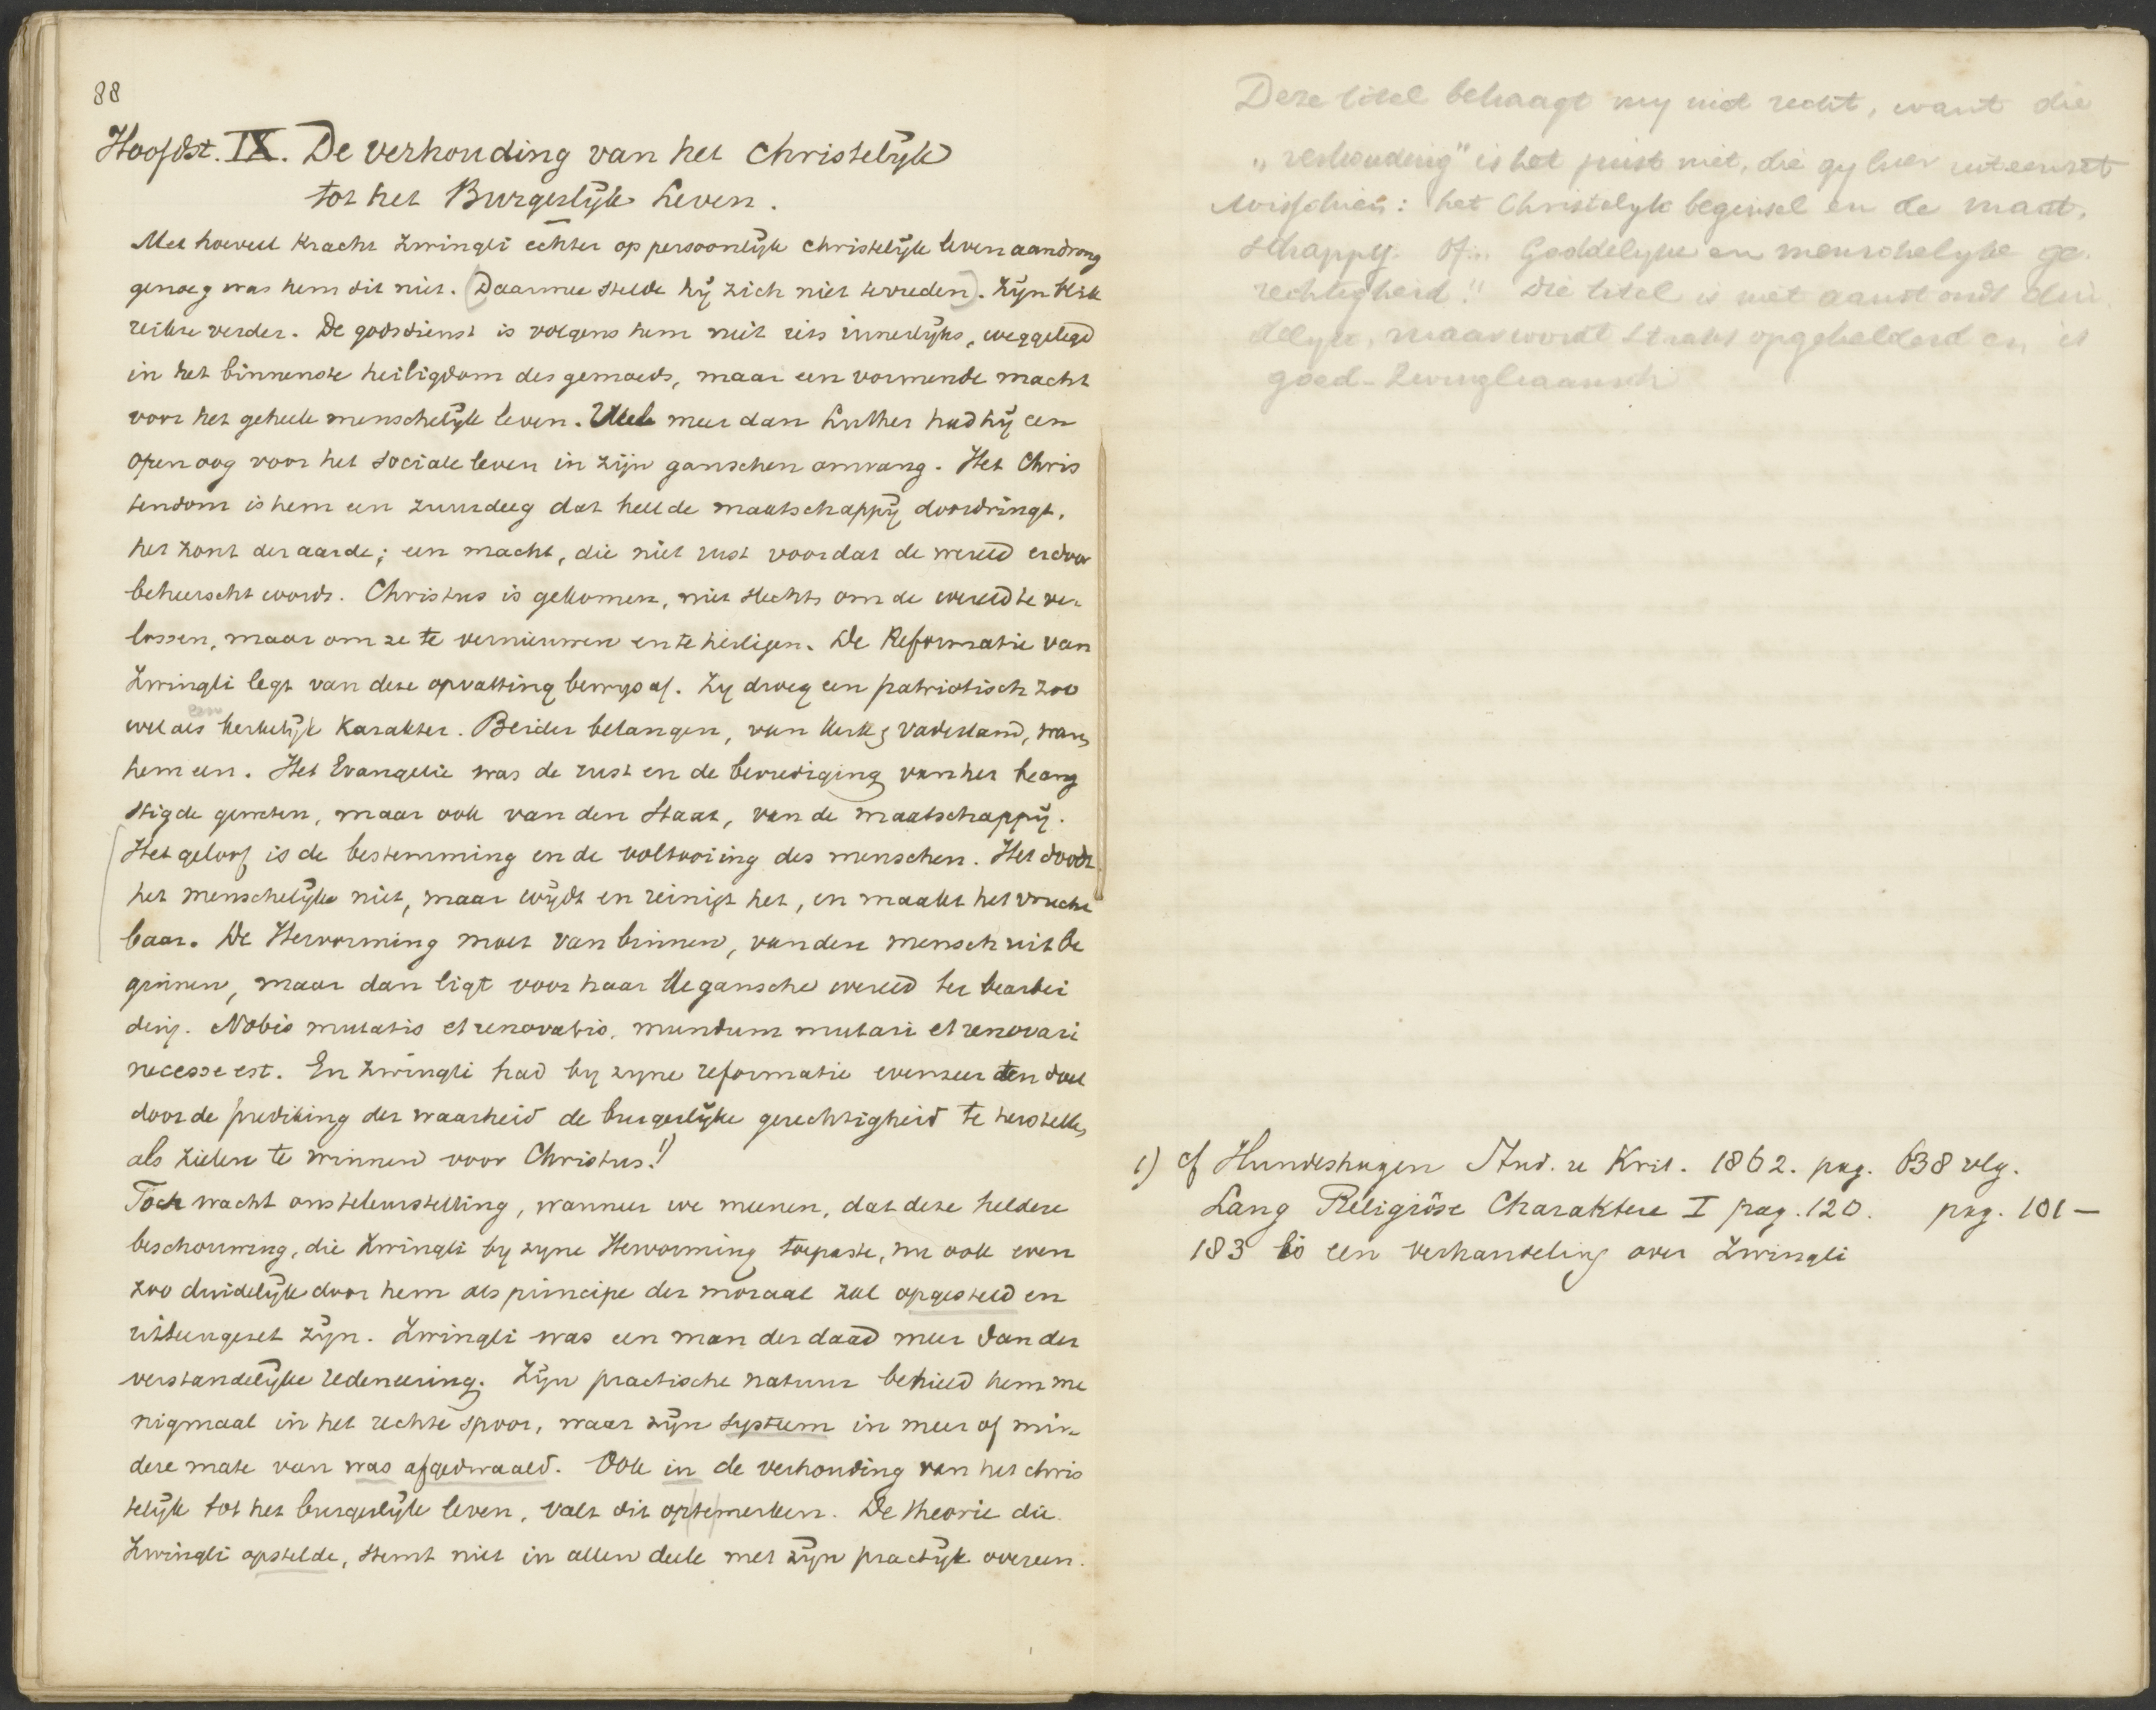 88
Hoofdst. IX. De verhouding van het Christelijk
tot het Burgerlijk Leven.
Met hoeveel kracht Zwingli echter op persoonlijk christelijk leven aandrong
genoeg was hem dit niet. (Daarmee stelde hij zich niet tevreden). Zijn blik
reikte verder. De godsdienst is volgens hem niet iets innerlijks, weggelegd
in het binnenste heiligdom des gemoeds, maar een vormende macht
voor het geheele menschelijk leven. Veel meer dan Luther had hij een
open oog voor het sociale leven in zijn ganschen omvang. Het Chris
tendom is hem een zuurdeeg dat heel de maatschappij doordringt,
het zout der aarde; een macht, die niet rust voordat de wereld erdoor
beheerscht wordt. Christus is gekomen, niet slechts om de wereld te ver-
lossen, maar om ze te vernieuwen en te heiligen. De Reformatie van
Zwingli legt van deze opvatting bewijs af. Zy droeg een patriotisch zoo
wel als een kerkelijk karakter. Beider belangen, van kerk & vaderland, waren
hem een. Het Evangelie was de rust en de bevrediging van het beang
stigde geweten, maar ook van den Staat, van de maatschappij.
Het geloof is de bestemming en de voltooiing des menschen. Het doodt
het menschelijke niet, maar wijdt en reinigt het, en maakt het vrucht
baar. De Hervorming moet van binnen, van den mensch uit be
ginnen, maar dan ligt voor haar de gansche wereld ter bearbei
ding. Nobis mutatis et renovatis, mundum mutari et renovari
necesse est. En Zwingli had by zyne reformatie evenzeer ten doel
door de prediking der waarheid de burgerlijke gerechtigheid te herstellen,
als zielen te winnen voor Christus. 1)
Toch wacht ons teleurstelling, wanneer we meenen, dat deze heldere
beschouwing, die Zwingli by zyne Hervorming toepaste, nu ook even
zoo duidelijk door hem als principe der moraal zal opgesteld en
uiteengezet zijn. Zwingli was een man der daad meer dan der
verstandelijke redeneering. Zijn practische natuur behield hem me
nigmaal in het rechte spoor, waar zijn systeem in meer of min-
dere mate van was afgedwaald. Ook in de verhouding van het chris
telijk tot het burgerlijk leven, valt dit op te merken. De theorie die
Zwingli opstelde, stemt niet in allen deele met zijn practijk overeen.
Deze titel behaagt my niet recht, want die
„verhouding" is het juist niet, die gy hier uiteenzet
Misschien: het Christelyk beginsel en de maat-
schappy. Of „Goddelyke en menschelyke ge-
rechtigheid." Die titel is niet aanstonds dui-
delyk, maar wordt straks opgehelderd en is
goed-Zwingliaansch
1) cf Hundeshagen Stud. u Krit. 1862. pag. 638 vlg.
Lang Religiöse Charaktere I pag. 120. pag. 101 —
183 is een verhandeling over Zwingli